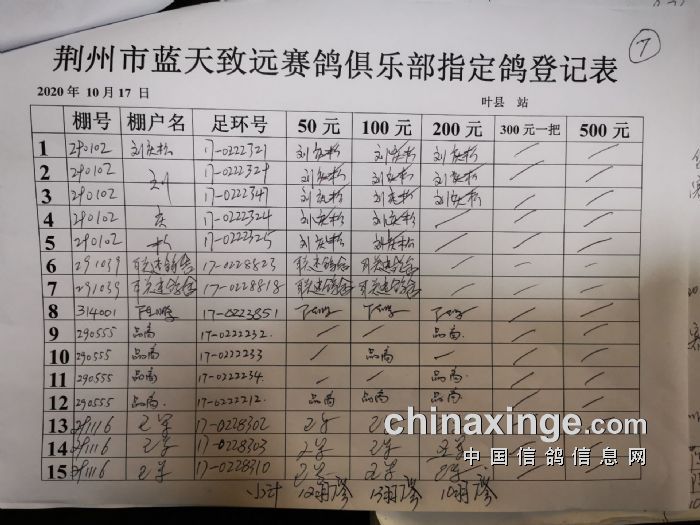 7
荆州市蓝天致远赛鸽俱乐部指定鸽登记表
2020年 10月17日 叶县 站
棚号 棚户名 足环号 50元 100元 200元 300元一把 500元
1 290102 刘庆松 17-0222321 刘庆松 刘庆松 刘庆松
2 290102 刘 17-0222329 刘庆松 刘庆松 刘庆松
3 290102 17-0222347 刘庆松 刘庆松 刘庆松
4 290102 庆 17-0222324 刘庆松 刘庆松
5 290102 松 17-0222325 刘庆松 刘庆松
6 291039 17-0228823
7 291039 17-0228818
8 314001 17-0223851
9 290555 品高 17-0222232 品高
10 290555 品高 17-0222233 品高
11 290555 品高 17-0222234 品高
12 290555 品高 17-0222212 品高 品高 品高
13 291116 王军 17-0228302 王军 王军
14 291116 王军 17-0228303 王军 王军 王军
15 291116 王军 17-0228310 王军 王军 王军
小计 12羽 13羽 10羽
chinaxinge.com
中国信鸽信息网